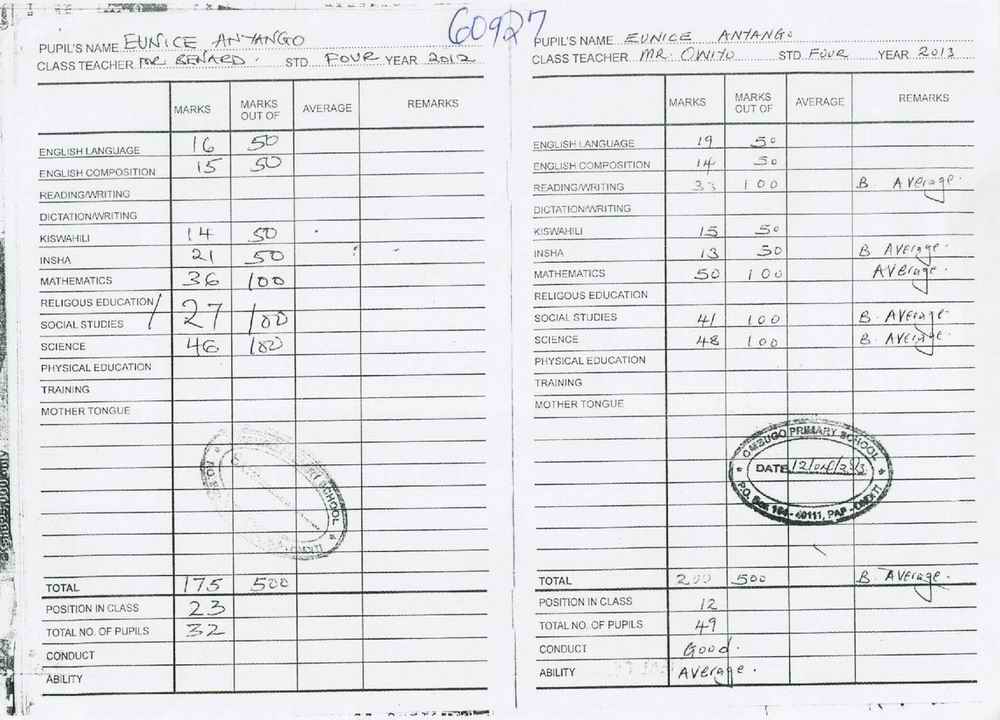 60927
PUPIL'S NAME EUNICE ANYANGO
CLASS TEACHER MR BENARD. STD FOUR YEAR 2012
MARKS MARKS OUT OF AVERAGE REMARKS
ENGLISH LANGUAGE 16 50
ENGLISH COMPOSITION 15 50
READING/WRITING
DICTATION/WRITING
KISWAHILI 14 50
INSHA 21 50
MATHEMATICS 36 100
RELIGOUS EDUCATION /
SOCIAL STUDIES 27 100
SCIENCE 46 100
PHYSICAL EDUCATION
TRAINING
MOTHER TONGUE
SCHOOL
TOTAL 175 500
POSITION IN CLASS 23
TOTAL NO. OF PUPILS 32
CONDUCT
ABILITY
PUPIL'S NAME EUNICE ANYANGO
CLASS TEACHER MR. OWITO STD FOUR YEAR 2013
MARKS MARKS OUT OF AVERAGE REMARKS
ENGLISH LANGUAGE 19 50
ENGLISH COMPOSITION 14 50
READING/WRITING 33 100 B. Average.
DICTATION/WRITING
KISWAHILI 15 50
INSHA 13 50 B Average.
MATHEMATICS 50 100 Average.
RELIGOUS EDUCATION
SOCIAL STUDIES 41 100 B. Average.
SCIENCE 48 100 B. Average.
PHYSICAL EDUCATION
TRAINING
MOTHER TONGUE
OMBUGO PRIMARY SCHOOL
DATE
P.O. Box 164 - 40111, PAP - ONDITI
TOTAL 200 500 B. Average.
POSITION IN CLASS 12
TOTAL NO. OF PUPILS 49
CONDUCT Good.
ABILITY Average.